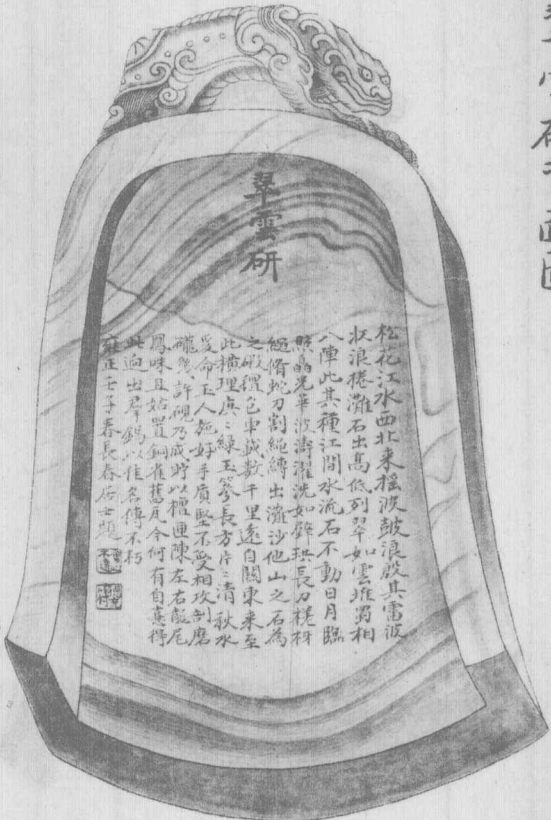 翠雲硯正面圖
翠雲硏
松花江水西北來搖波鼓浪殷其雷波
狀浪捲灘石出高低列翠如雲堆蜀相
八陣此其種江間水流石不動日月臨
照晶光華波濤濯洗如璧珙長刀槎枒
繩脩蛇刀割繩縛出灘沙他山之石為
之砥礶包車載數千里遠自關東來至
此橫理庚庚綠玉篸長方片片清秋水
爰命玉人施好手質堅不受相攻剖磨
礲幾許硯乃成貯以檀匣陳左右龍尾
鳳咮且姑置銅雀舊瓦今何有自憙得
此迥出羣錫以佳名傳不朽
雍正壬子春長春居士題